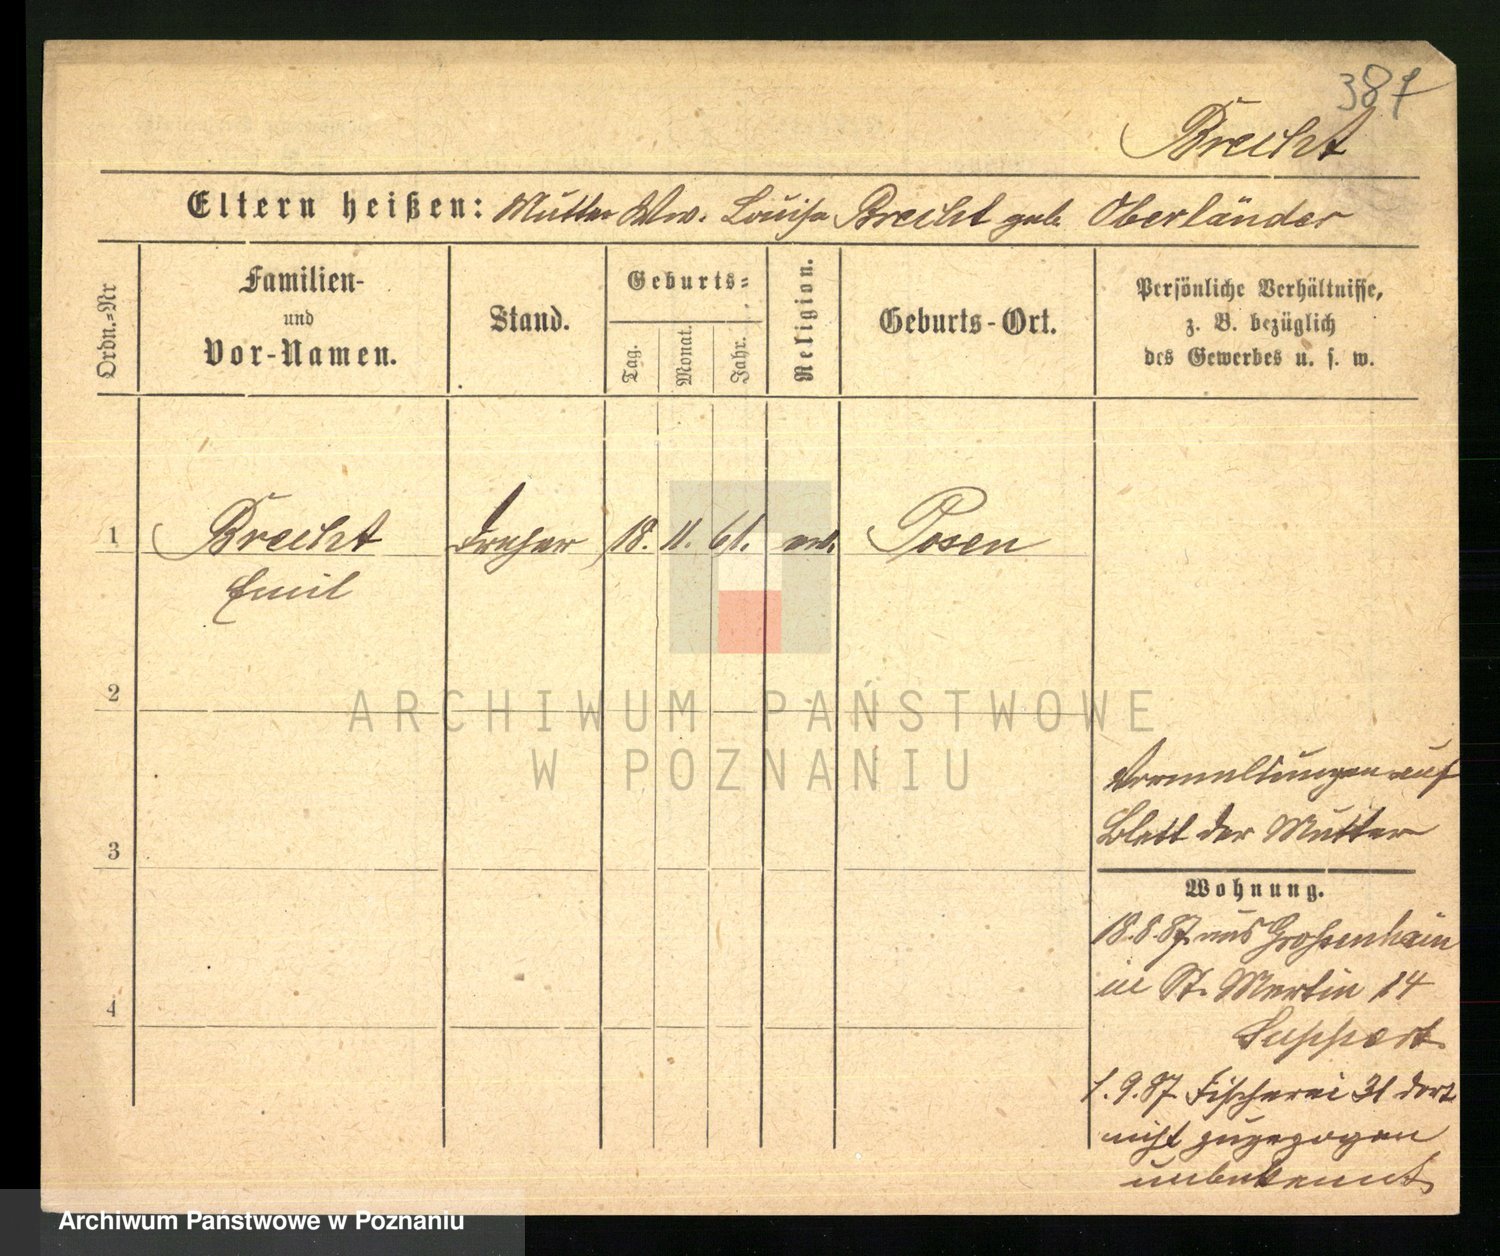 387
Brecht
Eltern heißen: Mutter Ww. Louise Brecht geb. Oberländer
Ordn.-Nr
Familien-
und
Vor-Namen.
Stand.
Geburts-
Tag.
Monat.
Jahr.
Religion.
Geburts-Ort.
Persönliche Verhältnisse,
z. B. bezüglich
des Gewerbes u. s. w.
1 Brecht Dreher 18. 11. 61. ev. Posen
Emil
2
ARCHIWUM PAŃSTWOWE
W POZNANIU
Vermeldungen auf
Blatt der Mutter
3
Wohnung.
18.8.87. aus Großenhain
in St. Martin 14
4
Luppert
1.9.87. Fischerei 31 dort
nicht zugezogen
unbekannt
Archiwum Państwowe w Poznaniu